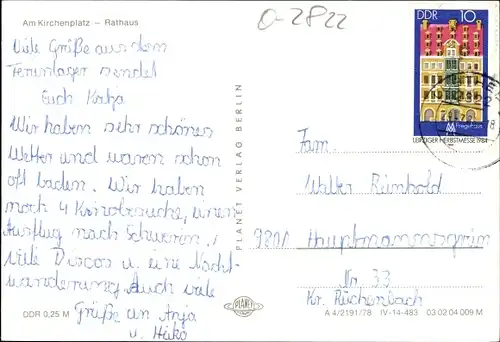 Am Kirchenplatz – Rathaus
o-2822
Viele Grüße aus dem
Ferienlager sendet
Euch Katja
Wir haben sehr schönes
Wetter und waren schon
oft baden. Wir haben
noch 4 Kinobesuche, einen
Ausflug nach Schwerin,
viele Discos u. eine Nacht-
wanderung. Auch viele
Grüße an Anja
u. Heiko
DDR 0,25 M
PLANET VERLAG BERLIN
PLANET
DDR 10
Fregehaus
LEIPZIGER HERBSTMESSE 1984
Fam.
Walter Reinhold
9801 Hauptmannsgrün
Nr. 33
Kr. Reichenbach
A 4/2191/78 IV-14-483 03 02 04 009 M